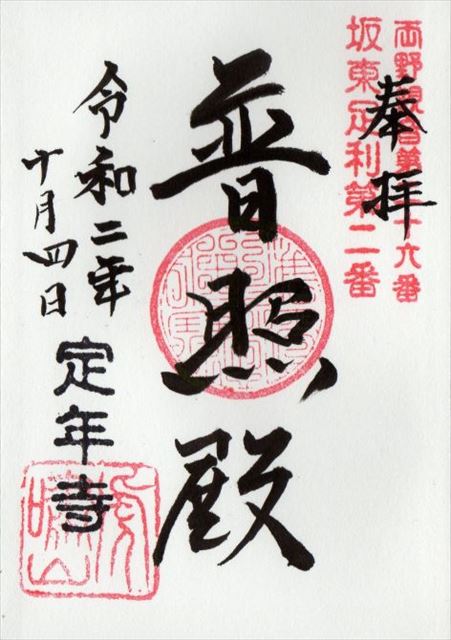 両野観音第十六番
坂東足利第二番
奉拝
普照殿
令和二年
十月四日
定年寺